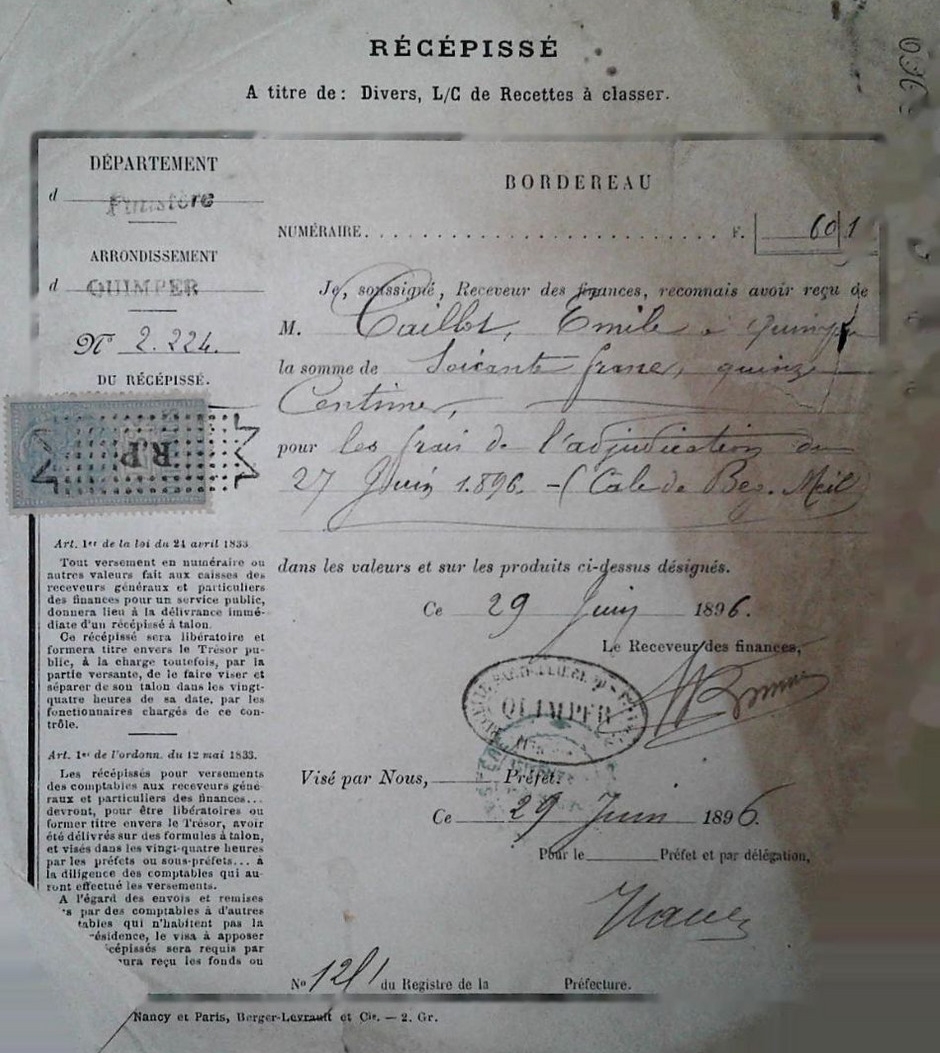 RÉCÉPISSÉ
A titre de: Divers, L/C de Recettes à classer.
DÉPARTEMENT
d Finistère
ARRONDISSEMENT
d QUIMPER
N° 2.224.
DU RÉCÉPISSÉ.
R.P
Art. 1er de la loi du 24 avril 1833.
Tout versement en numéraire ou
autres valeurs fait aux caisses des
receveurs généraux et particuliers
des finances pour un service public,
donnera lieu à la délivrance immé-
diate d'un récépissé à talon.
Ce récépissé sera libératoire et
formera titre envers le Trésor pu-
blic, à la charge toutefois, par la
partie versante, de le faire viser et
séparer de son talon dans les vingt-
quatre heures de sa date, par les
fonctionnaires chargés de ce con-
trôle.
Art. 1er de l'ordonn. du 12 mai 1833.
Les récépissés pour versements
des comptables aux receveurs géné-
raux et particuliers des finances...
devront, pour être libératoires ou
former titre envers le Trésor, avoir
été délivrés sur des formules à talon,
et visés dans les vingt-quatre heures
par les préfets ou sous-préfets... à
la diligence des comptables qui au-
ront effectué les versements.
A l'égard des envois et remises
par des comptables à d'autres
tables qui n'habitent pas la
résidence, le visa à apposer
cépissés sera requis par
aura reçu les fonds ou
BORDEREAU
NUMÉRAIRE. F. 60 1
Je, soussigné, Receveur des finances, reconnais avoir reçu de
M. Caillot, Emile à Quimper
la somme de Soixante francs, quinze
Centimes,
pour les frais de l'adjudication du
27 Juin 1896. - (Cale de Beg. Meil)
dans les valeurs et sur les produits ci-dessus désignés.
Ce 29 Juin 1896.
Le Receveur des finances,
QUIMPER
Visé par Nous, Préfet.
Ce 29 Juin 1896.
Pour le Préfet et par délégation,
No du Registre de la Préfecture.
Nancy et Paris, Berger-Levrault et Cie. — 2. Gr.